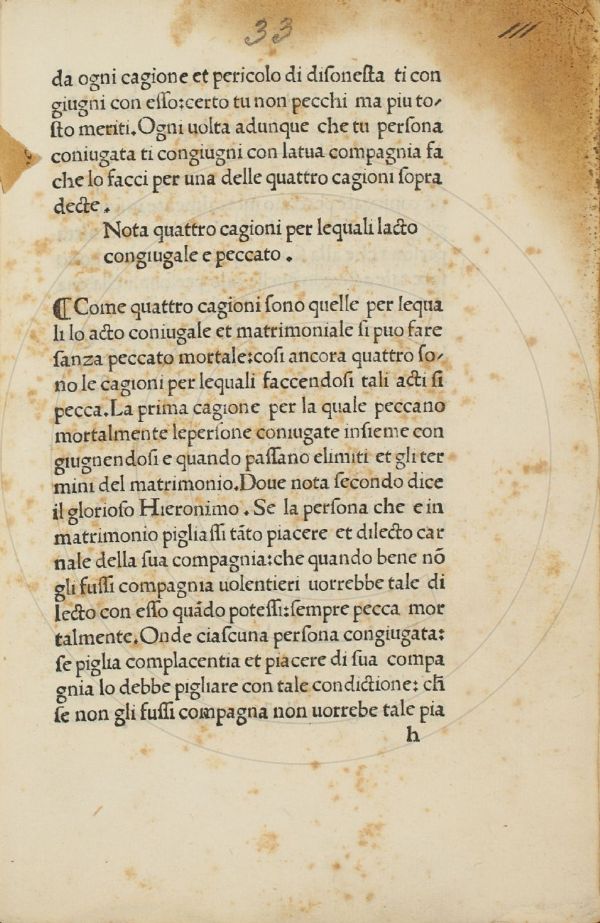 33
111
da ogni cagione et pericolo di disonesta ti con
giugni con esso:certo tu non pecchi ma piu to/
sto meriti.Ogni uolta adunque che tu persona
coniugata ti congiugni con latua compagnia fa
che lo facci per una delle quattro cagioni sopra
decte.
Nota quattro cagioni per lequali lacto
congiugale e peccato.
¶ Come quattro cagioni sono quelle per lequa
li lo acto coniugale et matrimoniale si puo fare
sanza peccato mortale:cosi ancora quattro so/
no le cagioni per lequali faccendosi tali acti si
pecca.La prima cagione per la quale peccano
mortalmente lepersone coniugate insieme con
giugnendosi e quando passano elimiti et gli ter
mini del matrimonio.Doue nota secondo dice
il glorioso Hieronimo. Se la persona che e in
matrimonio pigliassi tãto piacere et dilecto car
nale della sua compagnia:che quando bene nõ
gli fussi compagnia uolentieri uorrebbe tale di
lecto con esso quãdo potessi:sempre pecca mor
talmente.Onde ciascuna persona congiugata:
se piglia complacentia et piacere di sua compa
gnia lo debbe pigliare con tale condictione: ch̃
se non gli fussi compagna non uorrebe tale pia
h